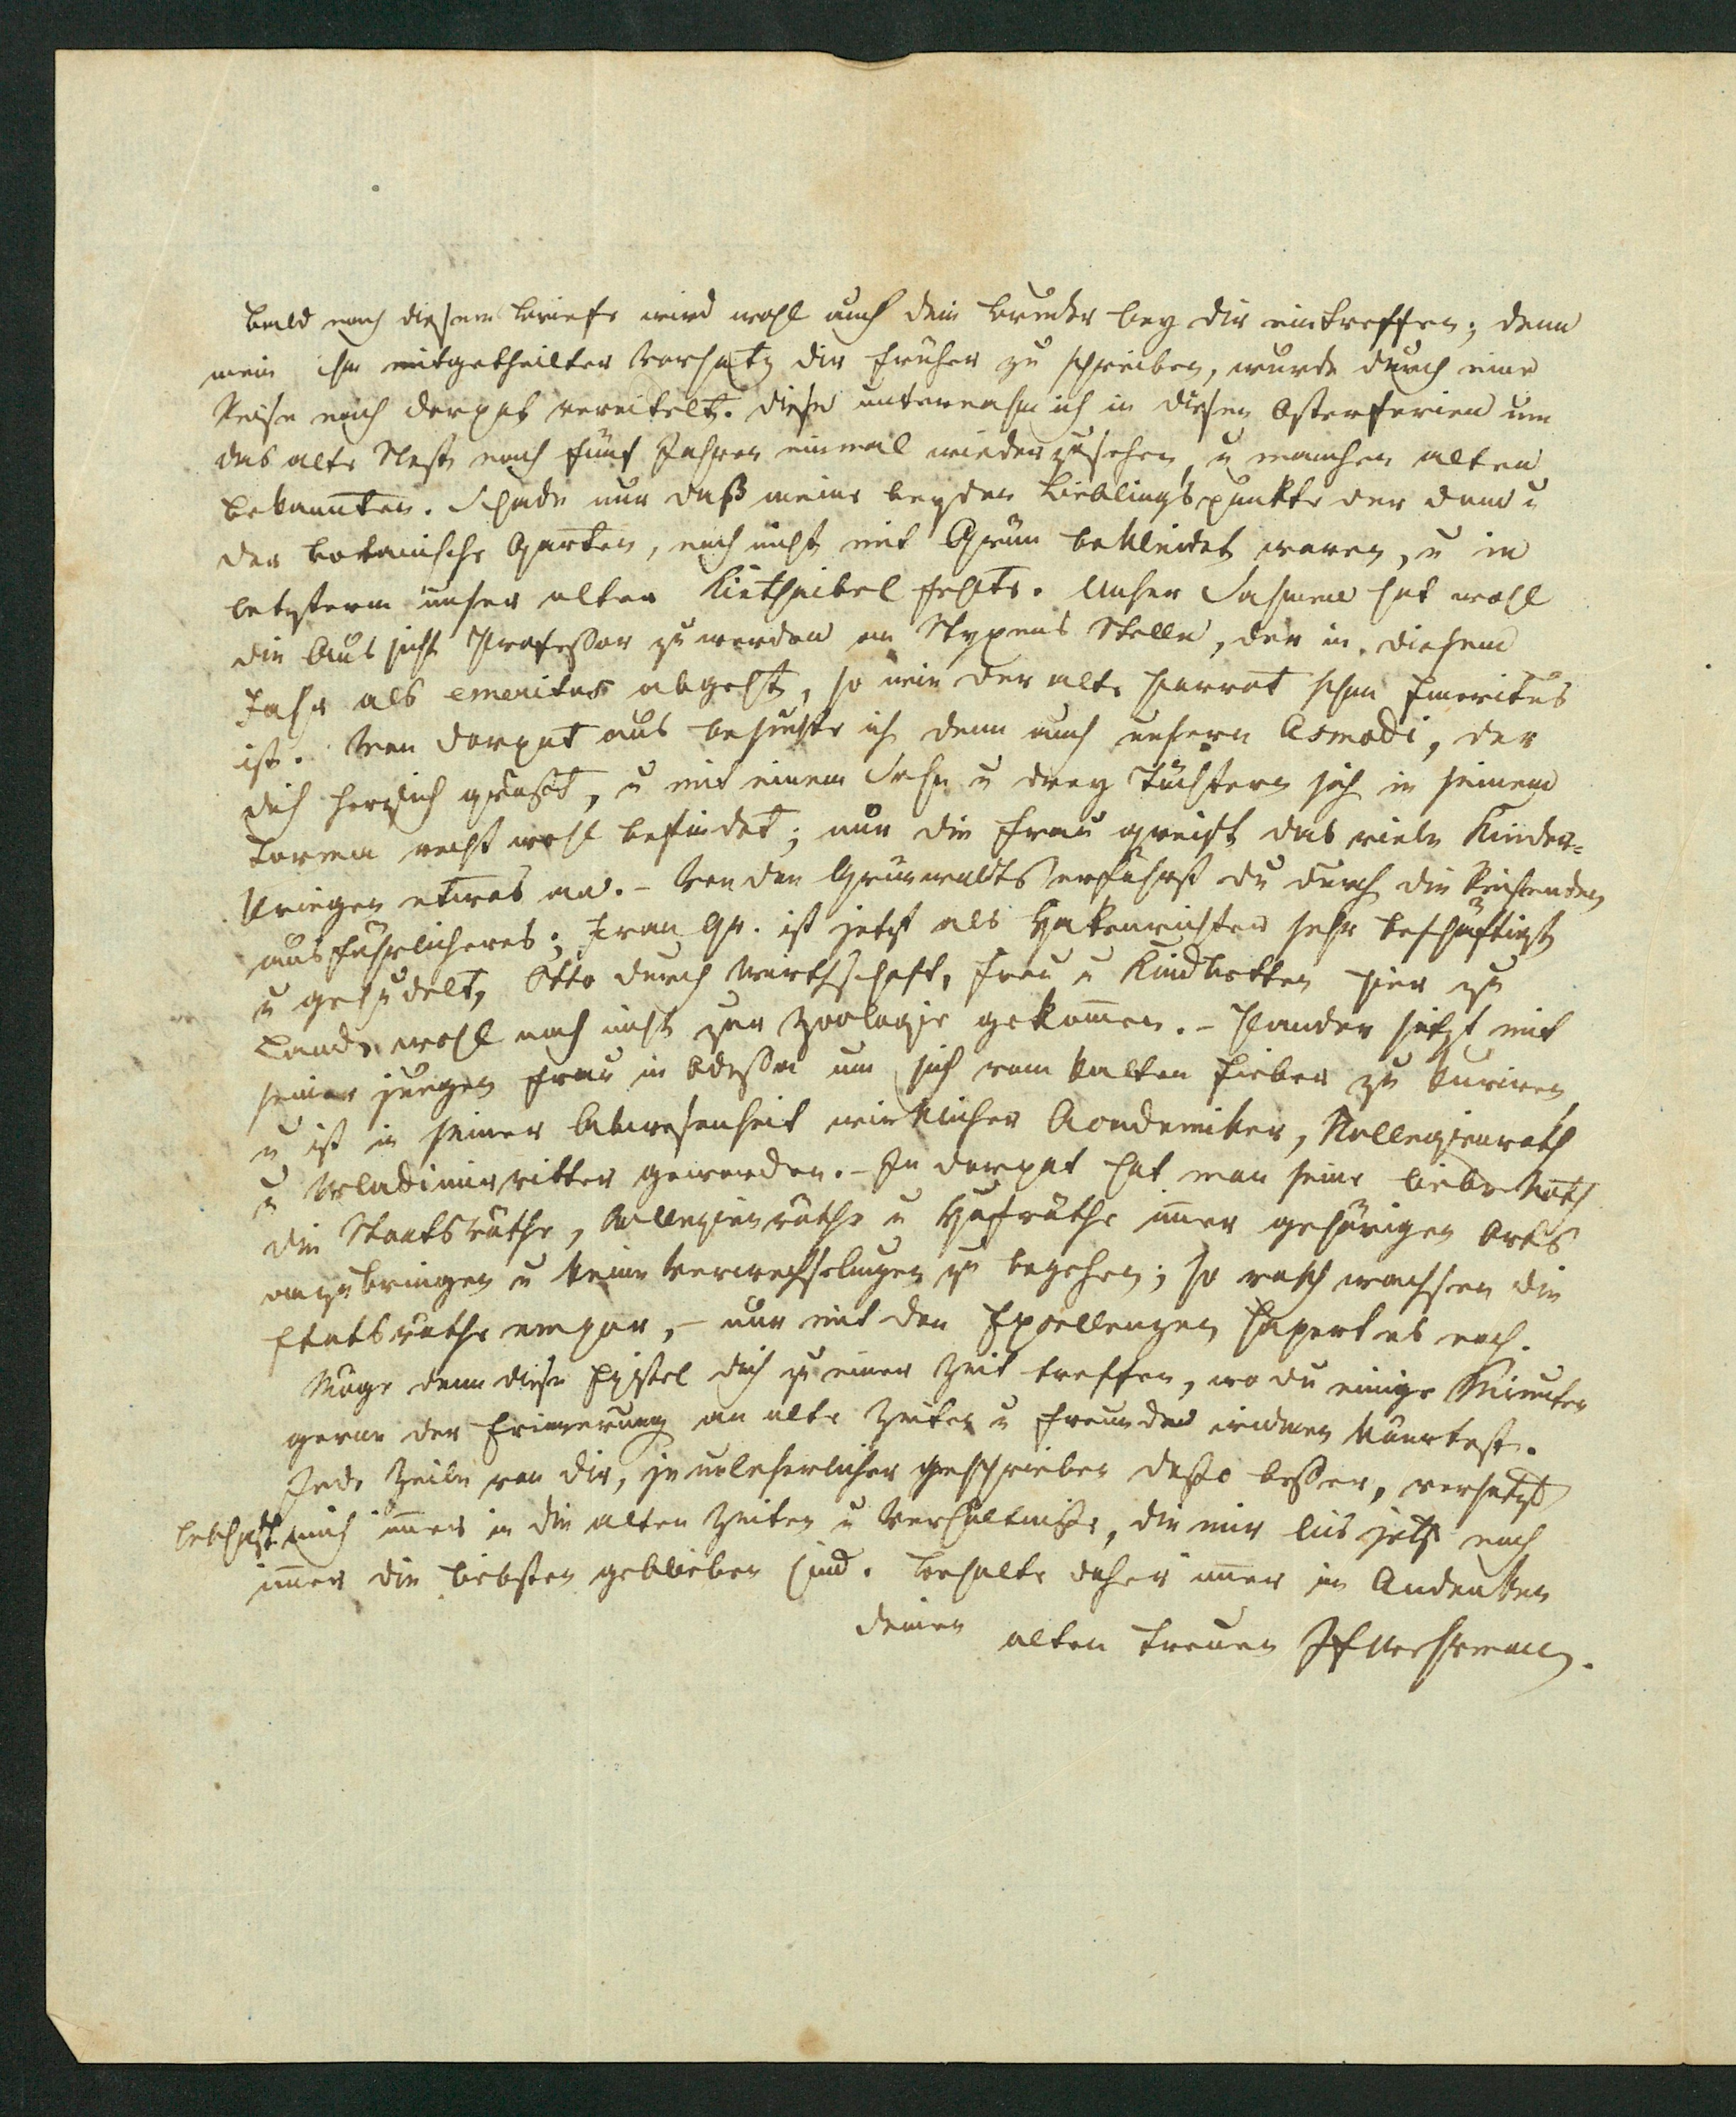 Bald nach diesem Briefe wird wohl auch dein Bruder bey dir eintreffen; denn
mein ihm mitgetheilter Vorsatz dir früher zu schreiben, wurde durch eine
Reise nach Dorpat vereitelt. Diese unternahm ich in diesen Osterferien um
das alte Nest nach fünf Jahren einmal wiederzusehen, u manchen alten
Bekannten. Schade nur daß meine beyden Lieblingspunkte der Dom u
der botanische Garten, noch nicht mit Grün bekleidet waren, u in
letzterem unser alter fehlte. Unser Sahmen hat wohl
die Aussicht Professor zu werden an Styxens Stelle, der in diesem
Jahr als emeritus abgeht, so wie der alte Parrot schon Emeritus
ist. Von Dorpat aus besuchte ich denn auch unsern Asmodi, der
dich herzlich grüßt, u mit einem Sohn u drey Töchtern sich in seinem
Torma recht wohl befindet; nur die Frau greift das viele Kinder=
kriegen etwas an. – Von den Grünwaldts erfährst du durch die Reisenden
ausführlicheres; Iwan Gr. ist jetzt als Hakenrichter sehr beschäftigt
u gehudelt, Otto durch Wirthschaft, Frau u Kindbetten hier zu
Lande wohl noch nicht zur Zoologie gekommen. – Pander sitzt mit
seiner jungen Frau in Odessa um sich vom kalten Fieber zu kuriren,
u ist in seiner Abwesenheit wirklicher Academiker, Kollegienrath
u Wladimirritter geworden. – In Dorpat hat man seine liebe Noth
die Staatsräthe, Kollegienräthe u Hofräthe immer gehörigen Orts
anzubringen u keine Verwechselungen zu begehen; so rasch wachsen die
Etatsräthe empor, – nur mit den Excellenzen hapert es noch.
Möge denn diese Epistel dich zu einer Zeit treffen, wo du einige Minuten
gerne der Erinnerung an alte Zeiten u Freunde widmen könntest.
Jede Zeile von dir, je unleserlicher geschrieben desto besser, versetzt
lebhaft mich immer in die alten Zeiten u Verhältnisse, die mir bis jetzt noch
immer die liebsten geblieben sind. Behalte daher immer in Andenken
deinen alten treuen